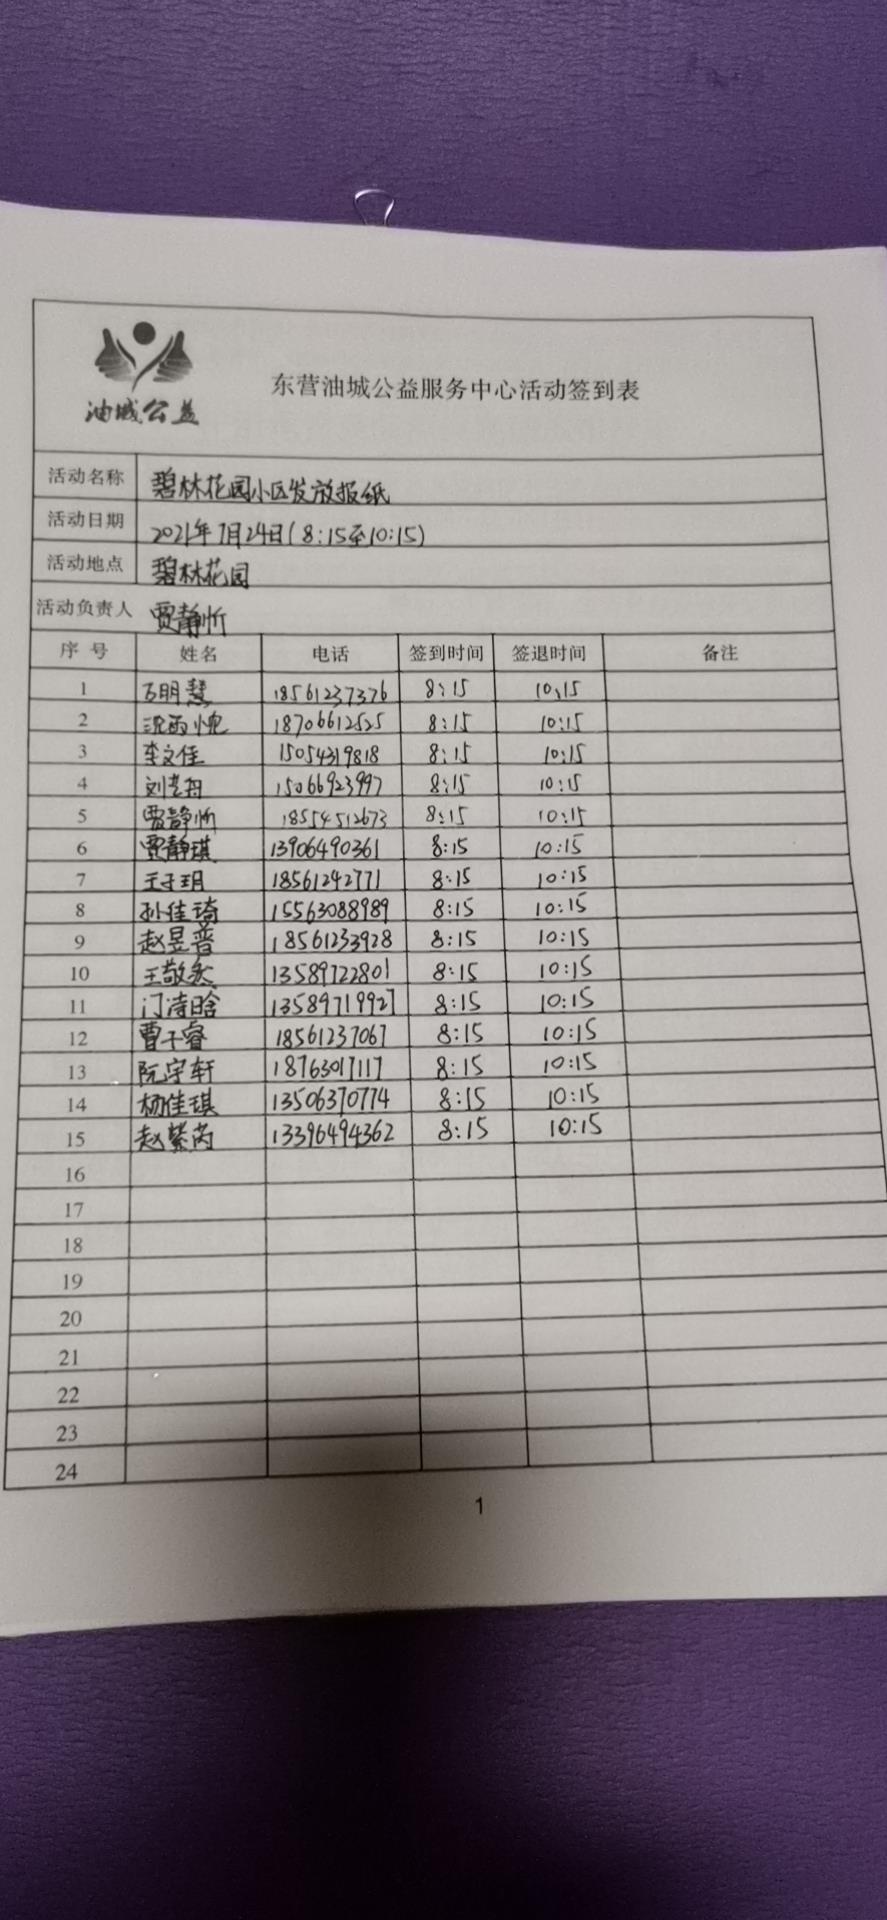 油城公益
东营油城公益服务中心活动签到表
活动名称 碧林花园小区发放报纸
活动日期 2021年7月24日(8:15至10:15)
活动地点 碧林花园
活动负责人 贾静忻
序号 姓名 电话 签到时间 签退时间 备注
1 明慧 18561237376 8:15 10:15
2 沈雨 18706612525 8:15 10:15
3 李文佳 15054319818 8:15 10:15
4 刘 15066923997 8:15 10:15
5 贾静忻 18554512673 8:15 10:15
6 贾静琪 13906490361 8:15 10:15
7 王子玥 18561242771 8:15 10:15
8 孙佳琦 15563088989 8:15 10:15
9 赵昱普 18561233928 8:15 10:15
10 王敬 13589722801 8:15 10:15
11 门诗晗 13589719927 8:15 10:15
12 曹子睿 18561237067 8:15 10:15
13 阮宇轩 18763017117 8:15 10:15
14 杨佳琪 13506370774 8:15 10:15
15 赵紫芮 13396494362 8:15 10:15
16
17
18
19
20
21
22
23
24
1